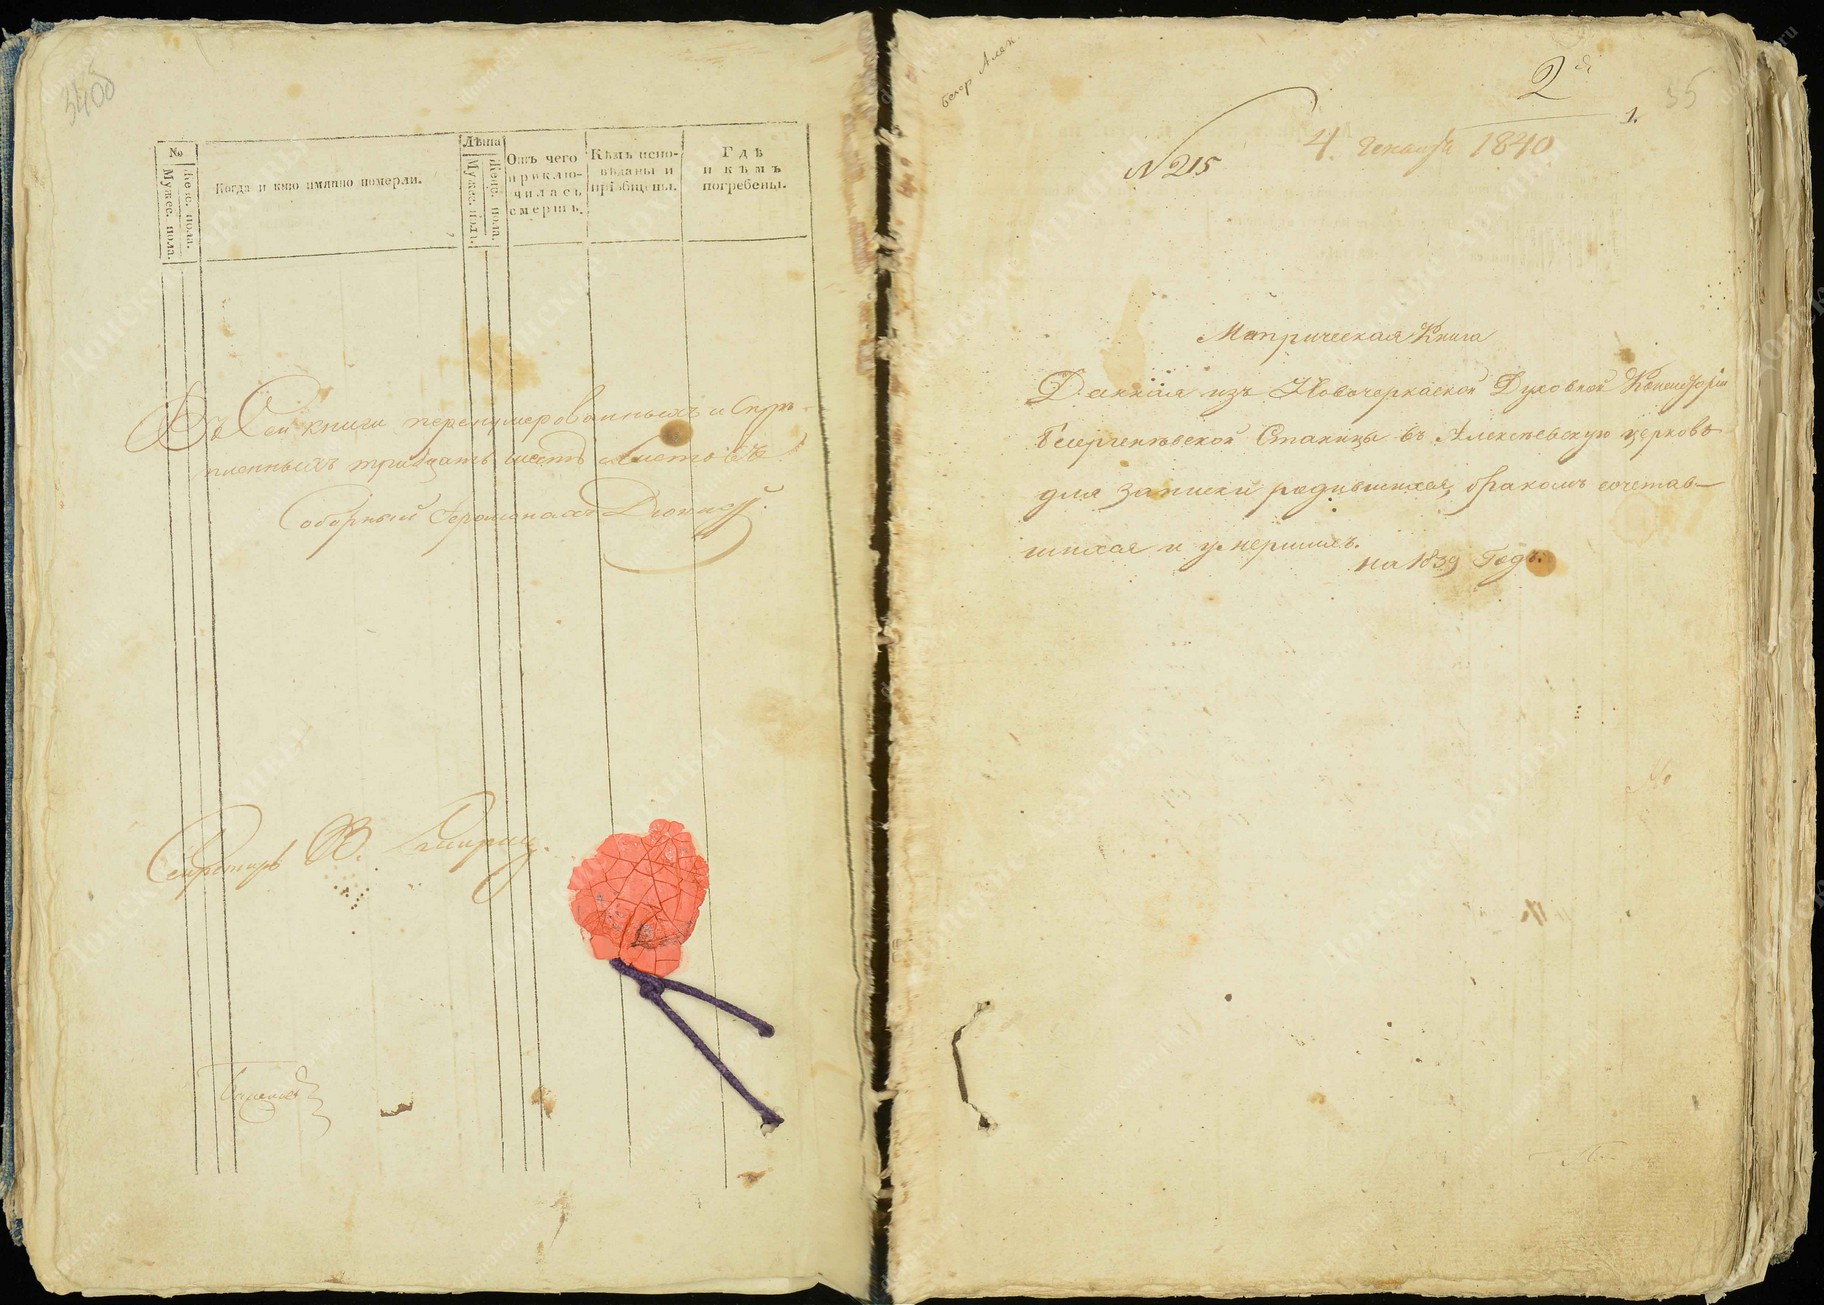 №
Мужес. пола.
Женс. пола.
Когда и кто имянно померли.
Лѣта
Мужес. полъ.
Женс. пола.
Отъ чего
приклю-
чилась
смерть.
Кѣмъ испо-
вѣданы и
прiобщены.
Гдѣ
и кѣмъ
погребены.
Въ Сей книги перенумерованныхъ и Скрѣ-
пленныхъ тридцать шесть листовъ
Соборный Iеромонахъ
Секретарь В.
Белер. Алек.
2й
1.
55
№ 215
4. Генваря 1840
Метрическая Книга
Данная изъ Новочеркаской Духовной Консисторiи
Бесергеневской Станицы въ Алексѣевскую церковь
для записки родившихся, бракомъ сочетав-
шихся и умершихъ.
на 1839 Годъ.
Донские Архивы
donarch.ru